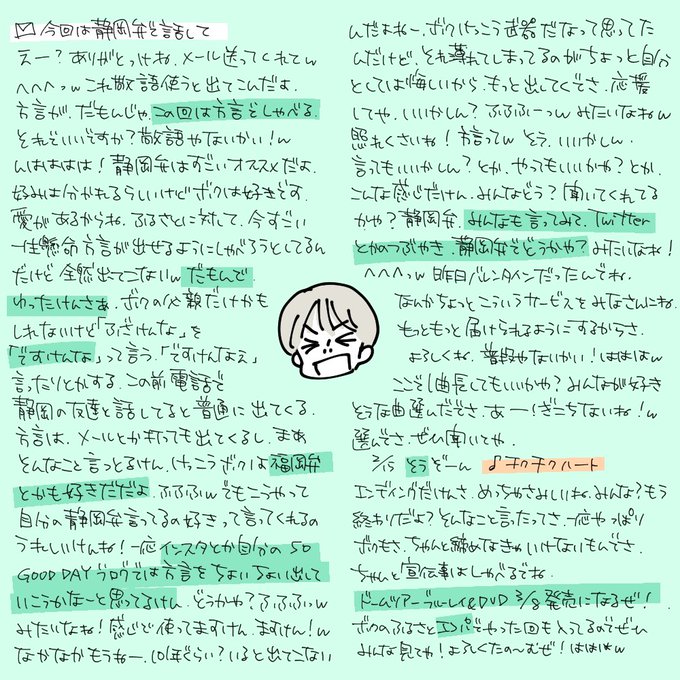 今回は静岡弁を話して
えー？ありがとっけね。メール送ってくれてw
へへへっw これ敬語使うと出てこんだよ。
方言が。だもんじゃ、この回は方言でしゃべる。
それでいいですか？敬語やないかい！w
んはははは！静岡弁はすごいオススメだよ。
好みは分かれるらしいけどボクは好きです。
愛があるからね。ふるさとに対して。今すごい
一生懸命方言が出せるようにしゃべろうとしてるん
だけど 全然出てこないw だもんで
ゆったけんさぁ、ボクの父親だけかも
しれないけど「ふざけんな」を
「ですけんな」って言う。「ですけんなぇ」
言ったりとかする。この前電話で
静岡の友達と話してると普通に出てくる。
方言は。メールとか打っても出てくるし。まあ
そんなこと言っとるけん。けっこうボクは福岡弁
とかも好きだだよ ふふふw でもこうやって
自分の静岡弁言ってるの好きって言ってくれるの
うれしいけんね！一応インスタとか自分の50
GOOD DAYブログでは方言をちょいちょい出して
いこうかなーと思ってるけん。どうかや？ふふふっw
みたいなね！感じで使ってますけん。ますけん！w
なかなかもうねー。10年ぐらい？いると出てこない
んだよねー。ボクけっこう武器だなって思ってた
んだけど、それ薄れてしまってるのがちょっと自分
としては悔しいから。もっと出してくでさ。応援
してや。いいかしん？ふふふーっw みたいなねw
照れくさいね！方言ってw そう。いいかしん。
言ってもいいかしん？とか。やってもいいかや？とか。
こんな感じだけん。みんなどう？聞いてくれてる
かや？静岡弁。みんなも言ってみて。Twitter
とかのつぶやき。静岡弁でどうかや？みたいなね！
へへへっw 昨日バレンタインだったんでね。
なんかちょっとこういうサービスをみなさんにね。
もっともっと届けられるようにするからさ。
よろしくね。普段やないかい！ははははw
ここで1曲長してもいいかや？みんなが好き
そうな曲選んださ。あーーぎこちないね！w
選んでさ。ぜひ聞いてや。
2/15 そうぞーん ♪チクチクハート
エンディングだけんさ。めっちゃさみしいね。みんな？もう
終わりだよ？そんなこと言ったってさ。一応やっぱり
ボクもさ、ちゃんと締めなきゃいけないもんでさ。
ちゃんと宣伝事はしゃべるでね。
ドームツアーブルーレイ&DVD 3/8 発売になるぜ！
ボクのふるさとエコパでやった回も入ってるのでぜひ
みんな見てや！よろしくたの〜むぜ！ははは*w